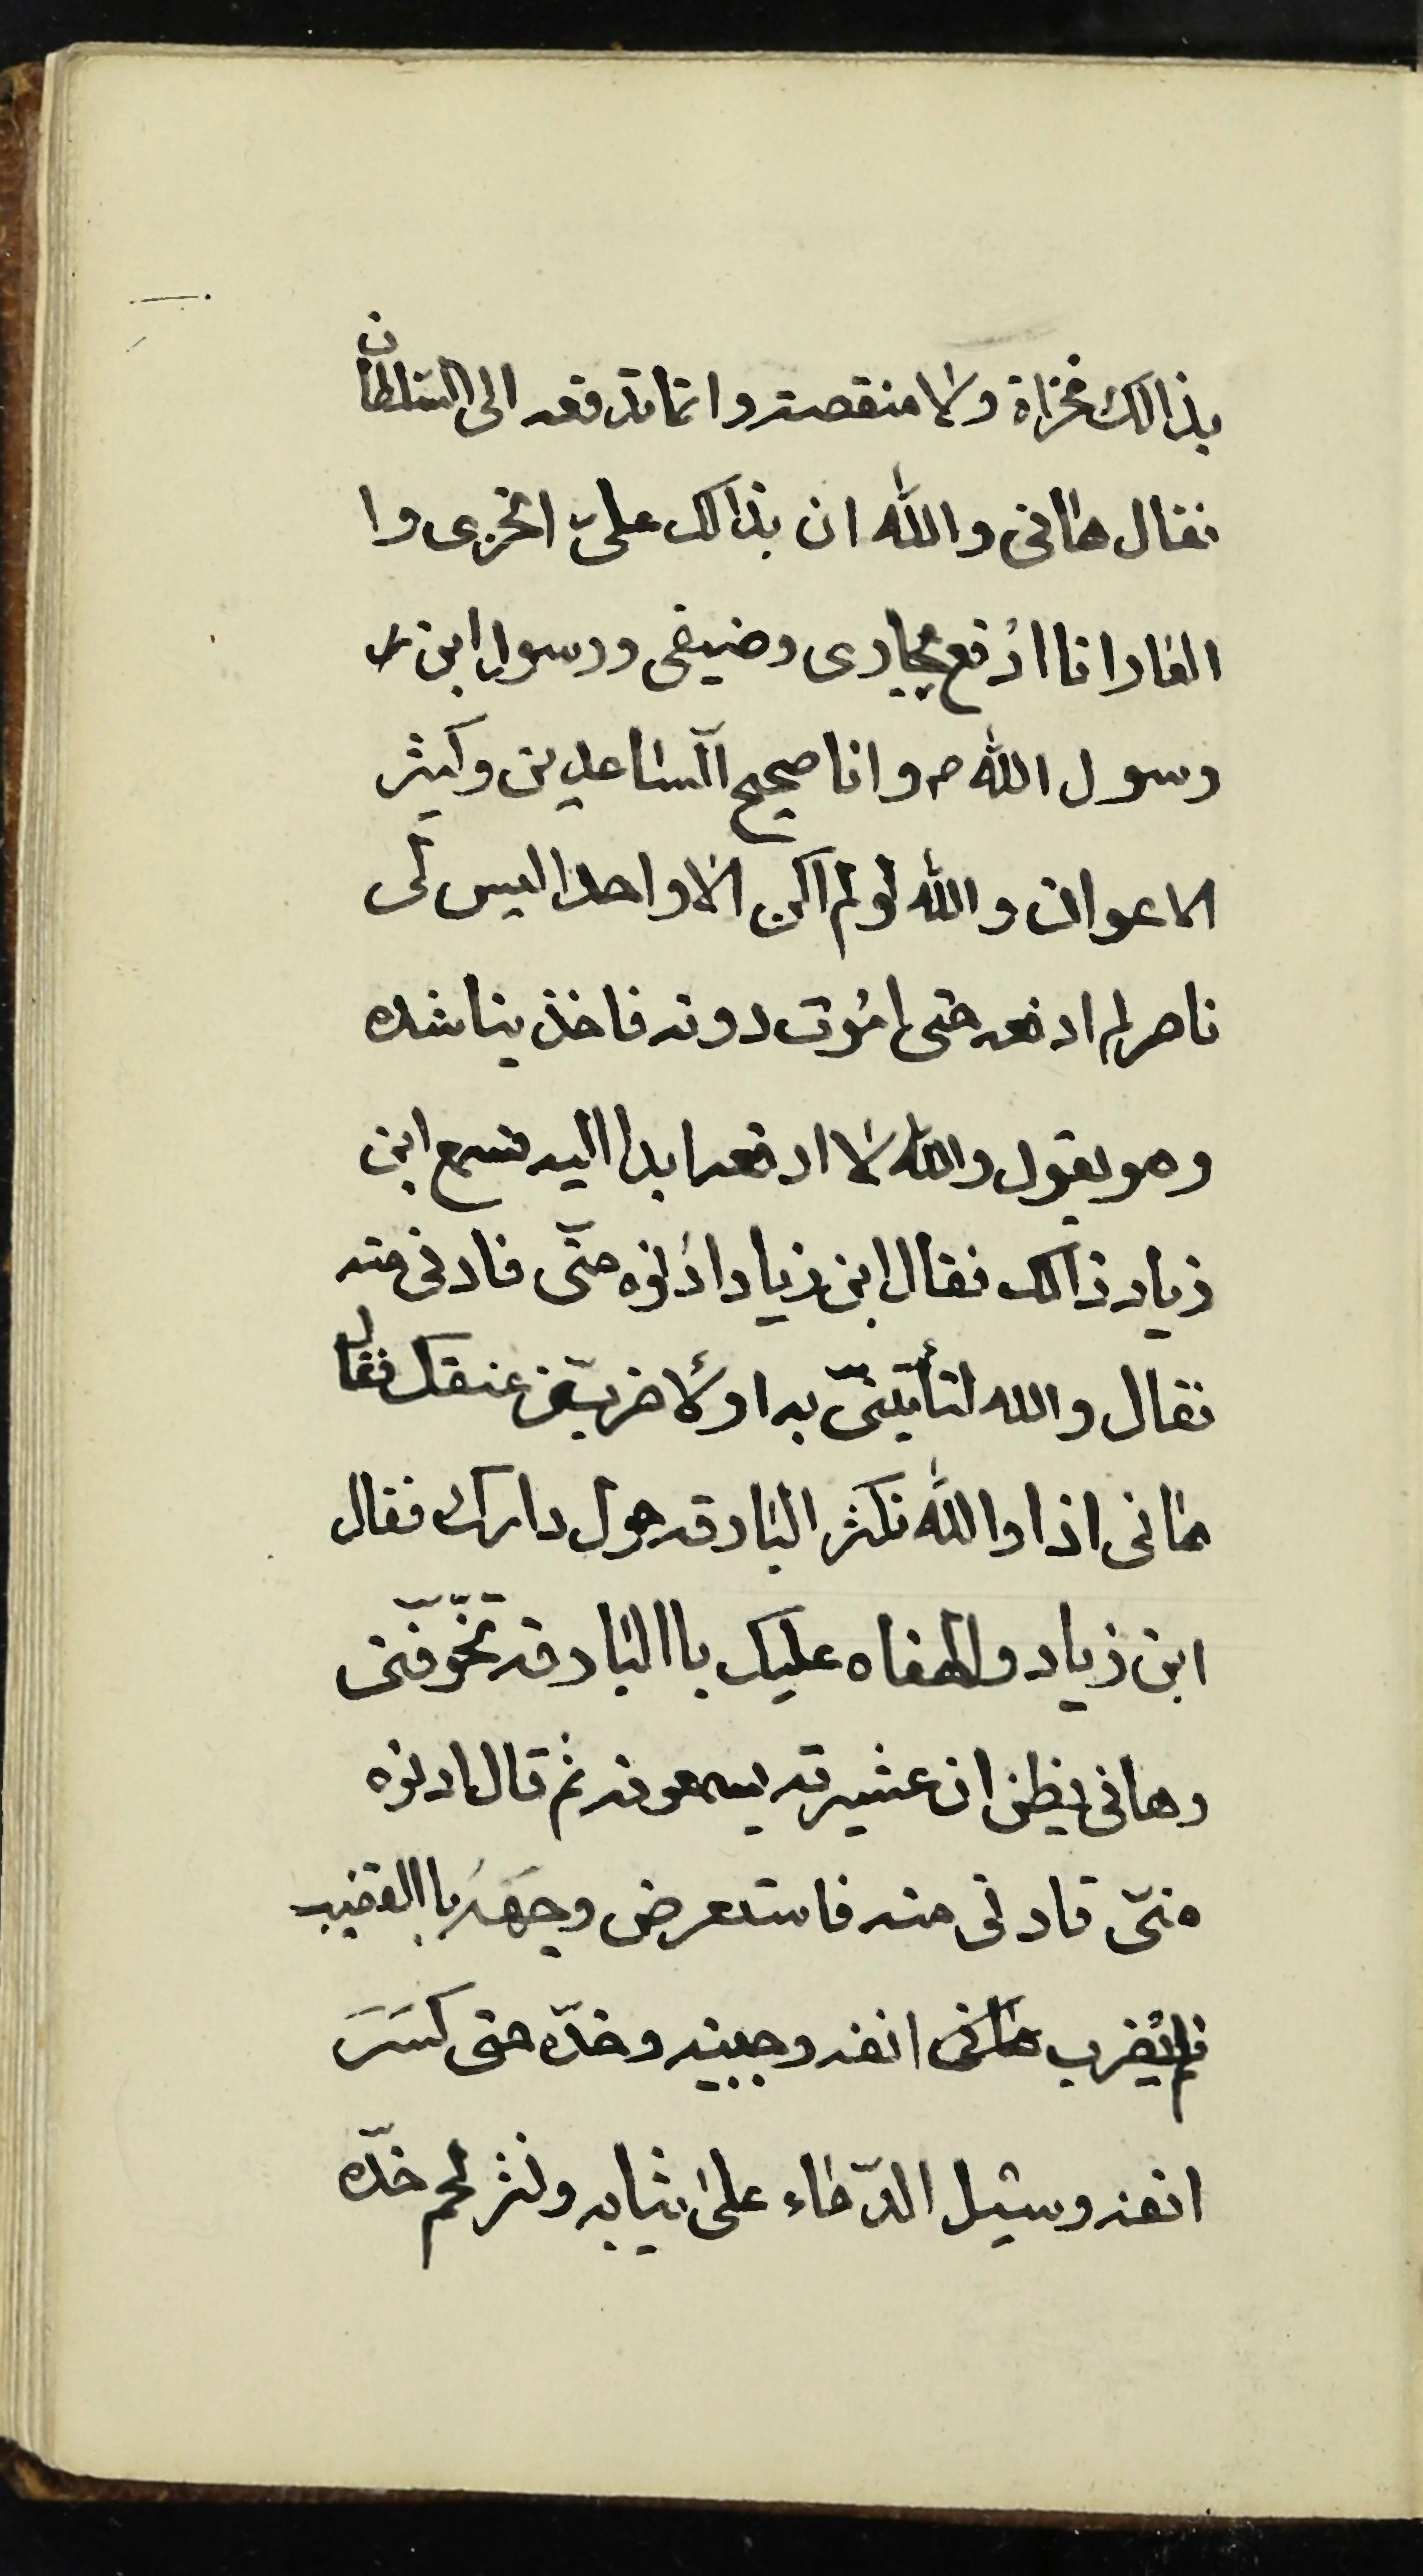 بذالك مخزاة ولا منقصته وانما تدفعه الى السّلطان
فقال هانى والله ان بذالك علىّ الخزى وا
العار انا ادفع بجارى وضيفى ورسول ابن
رسول الله ص وانا صحيح السّاعدين وكثير
الاعوان والله لو لم اكن الا واحدا ليس لى
ناصر لم ادفعه حتى اموت دونه فاخذ يناشده
وهو يقول والله لا ادفعه ابدا اليه فسمع ابن
زياد ذالك فقال ابن زياد ادنوه منّى فادنى منه
فقال والله لتأتينّى به او لأضربنّ عنقك فقال
هانى اذا والله تكثر البارقه حول دارك فقال
ابن زياد والهفاه عليك باالبارقه تخّوفّنى
وهانى يظن ان عشيرته يسمعونه ثم قال ادنوه
منّى فادنى منه فاستعرض وجهه باالقضيب
فلم يضرب هانى انفه وجبينه وخدّه حتى كسَرَ
انفه وسيّل الدّماء على ثيابه ونثر لحم خدّه